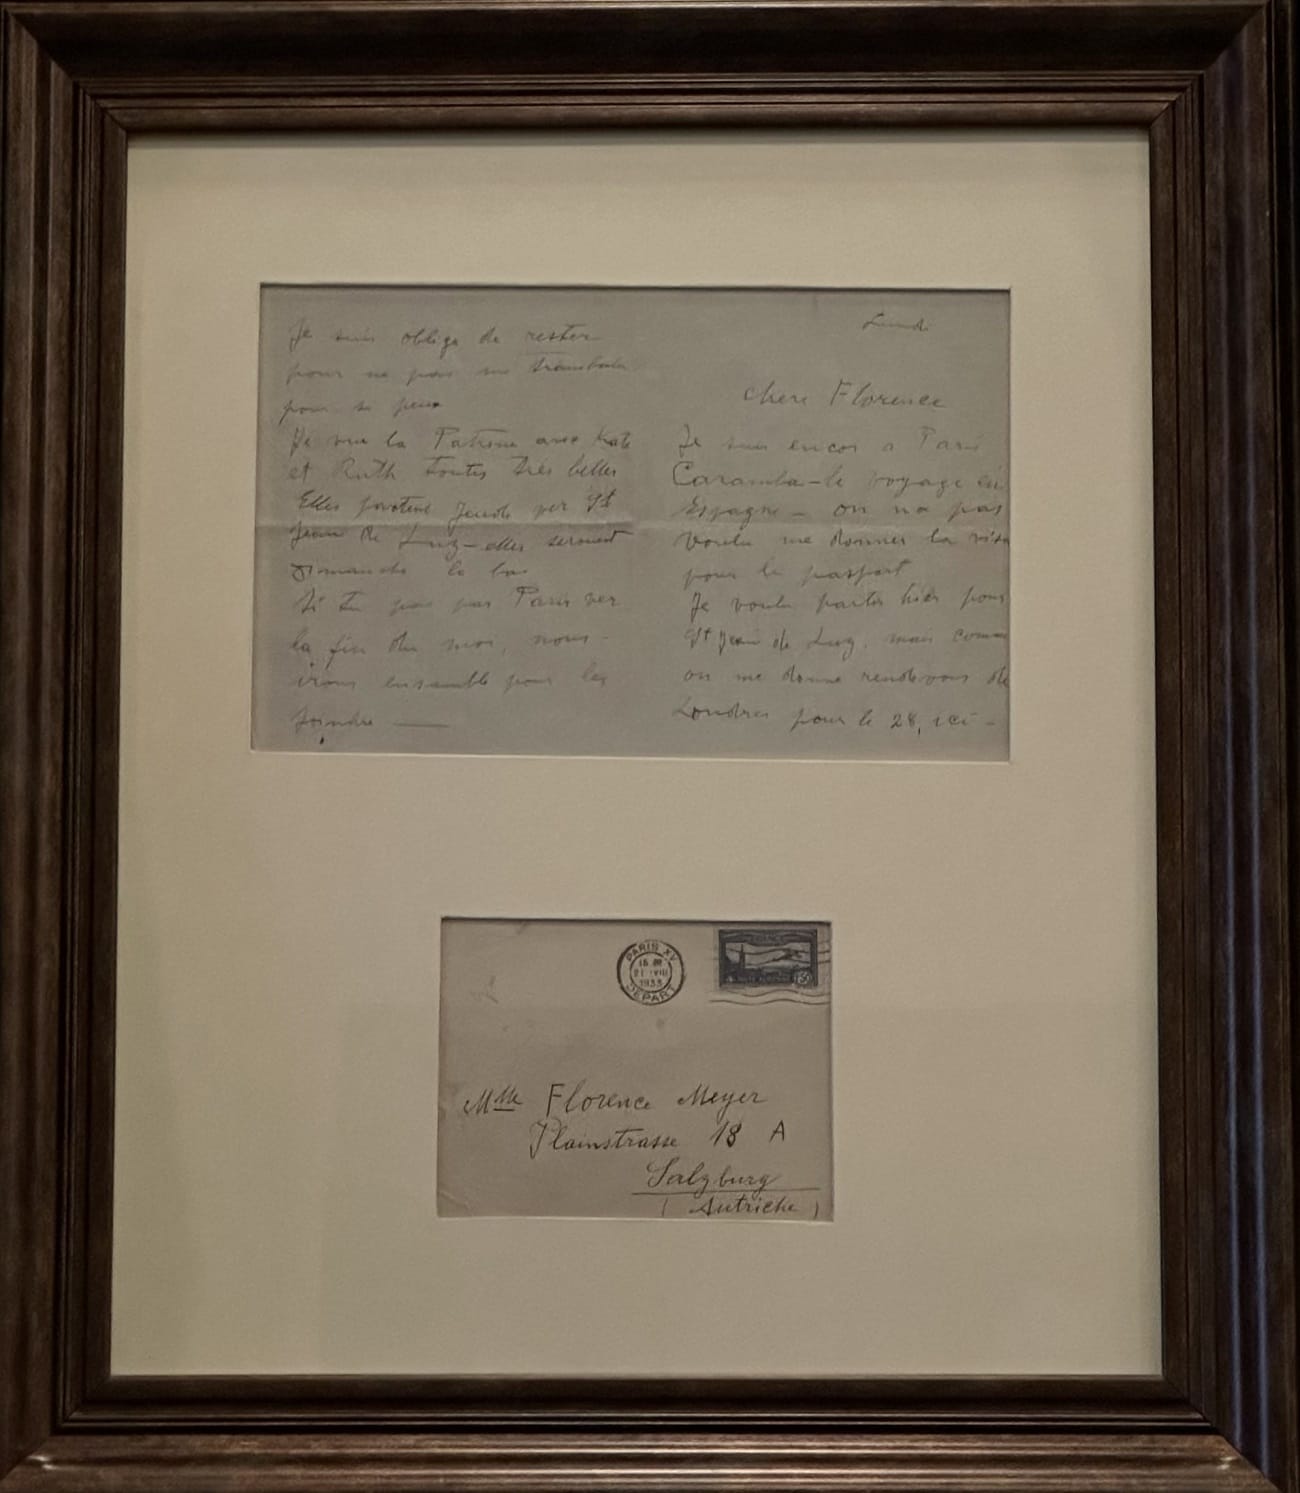 Lundi
chere Florence
Je suis encor a Paris
Caramba - le voyage en
Espagne - on na pas
voulu me donner la visa
pour le pasport
Je voulu partir hier pour
St Jean de Luz, mais comme
on me donne rendevous de
Londres pour le 28, ici -
Je suis oblige de rester
pour ne pas me
pour si peux
Je vu la Patronne avec Kate
et Ruth toutes très belles
Elles partent Jeudi ver St
Jean de Luz - elles seront
Dimanche la bas
Si tu pas Paris ver
la fin du moi, nous -
irons ensamble pour les
Joindre
PARIS XV
21 VIII
1933
DEPART
Mlle Florence Meyer
Plainstrasse 18 A
Salzburg
( Autriche )